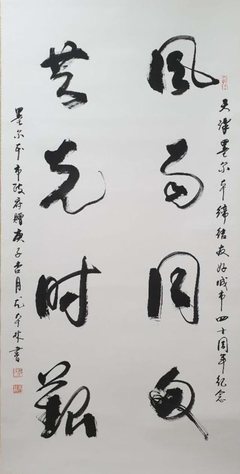 天津墨尔本缔结友好城市四十周年纪念
风雨同舟
共克时艰
墨尔本市政府赠庚子吉月书